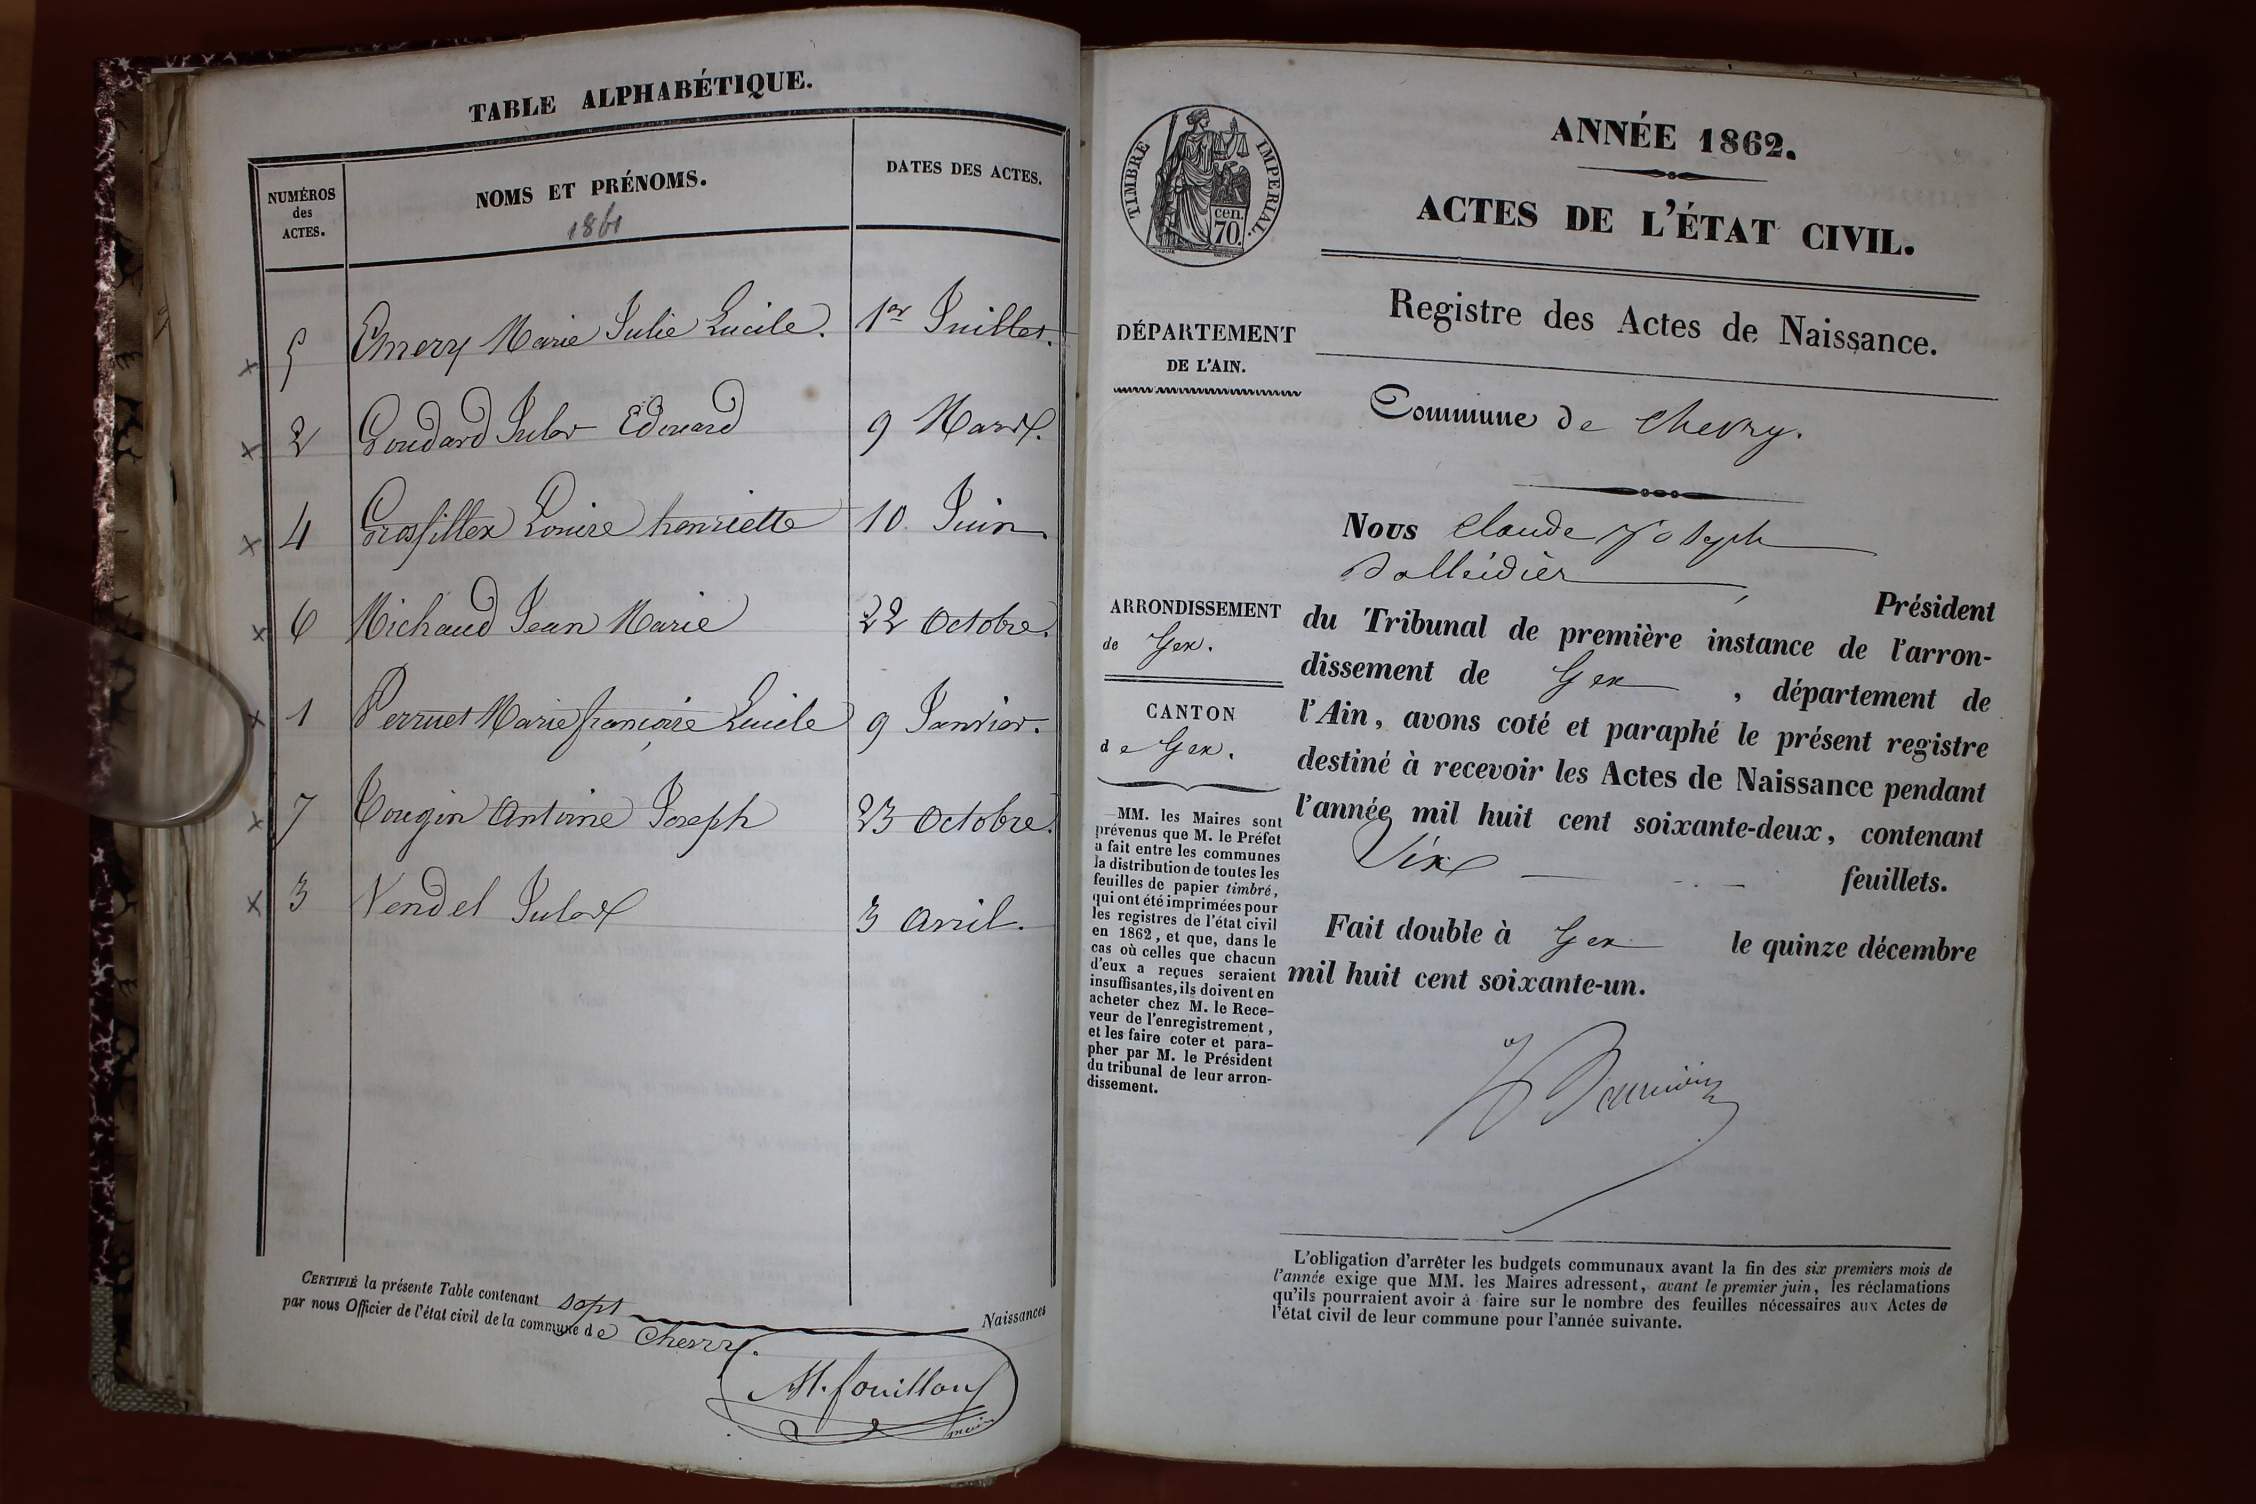 TABLE ALPHABÉTIQUE.
NUMÉROS des ACTES.
NOMS ET PRÉNOMS.
1861
DATES DES ACTES.
5 Emery Marie Julie Lucile. 1er Juillet.
2 Goudard Jules Edouard 9 Mars.
4 Grosfillex Louise henriette 10 Juin.
6 Michaud Jean Marie 22 Octobre.
1 Perruet Marie françoise Lucile 9 Janvier.
7 Tougin Antoine Joseph 23 Octobre.
3 Vendel Jules 3 Avril.
CERTIFIÉ la présente Table contenant sept Naissances
par nous Officier de l'état civil de la commune de Chevry.
M. fouilloux
maire
TIMBRE IMPERIAL.
cen.
70.
ANNÉE 1862.
ACTES DE L'ÉTAT CIVIL.
Registre des Actes de Naissance.
DÉPARTEMENT
DE L'AIN.
Commune de Chevry.
ARRONDISSEMENT
de Gex.
CANTON
de Gex.
MM. les Maires sont
prévenus que M. le Préfet
a fait entre les communes
la distribution de toutes les
feuilles de papier timbré,
qui ont été imprimées pour
les registres de l'état civil
en 1862, et que, dans le
cas où celles que chacun
d'eux a reçues seraient
insuffisantes, ils doivent en
acheter chez M. le Rece-
veur de l'enregistrement,
et les faire coter et para-
pher par M. le Président
du tribunal de leur arron-
dissement.
Nous Claude Joseph
Président
du Tribunal de première instance de l'arron-
dissement de Gex, département de
l'Ain, avons coté et paraphé le présent registre
destiné à recevoir les Actes de Naissance pendant
l'année mil huit cent soixante-deux, contenant
Six feuillets.
Fait double à Gex le quinze décembre
mil huit cent soixante-un.
L'obligation d'arrêter les budgets communaux avant la fin des six premiers mois de
l'année exige que MM. les Maires adressent, avant le premier juin, les réclamations
qu'ils pourraient avoir à faire sur le nombre des feuilles nécessaires aux Actes de
l'état civil de leur commune pour l'année suivante.